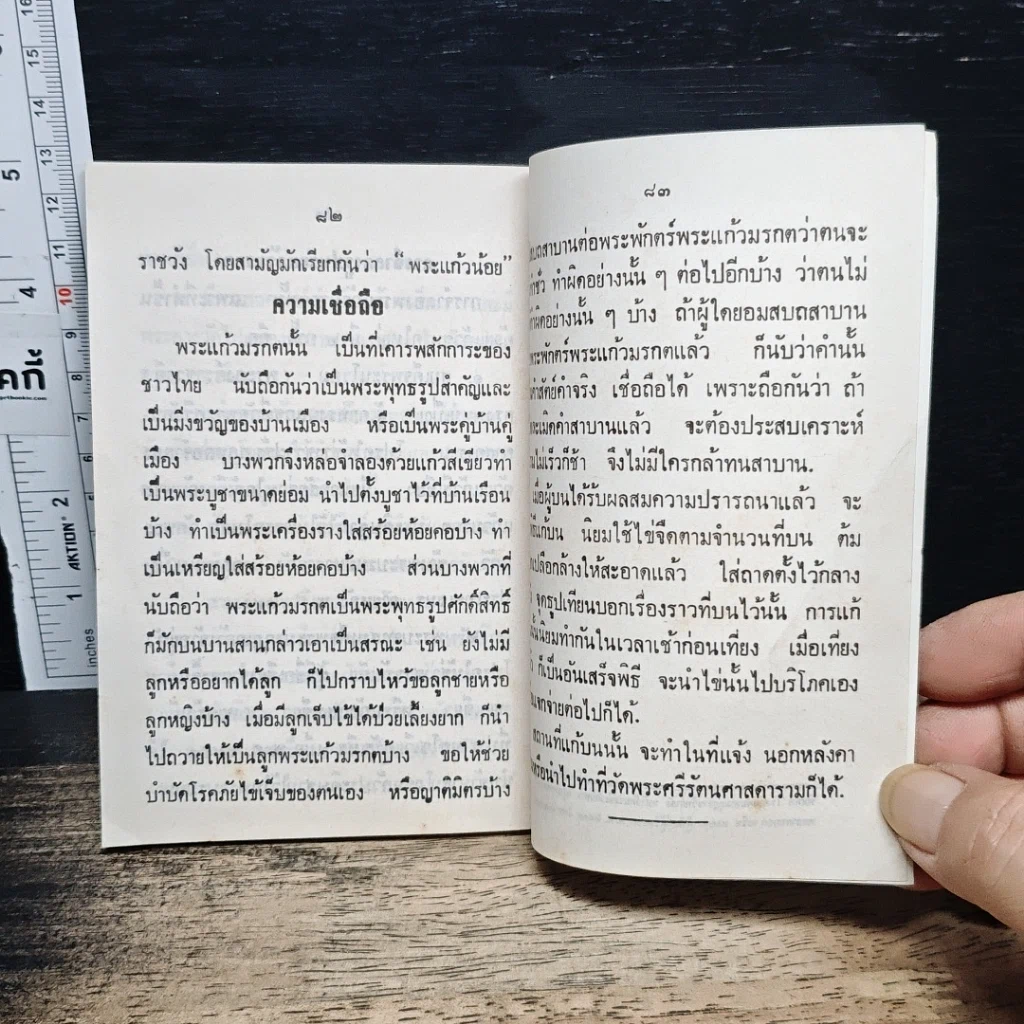 ๘๒
ราชวัง โดยสามัญมักเรียกกันว่า “พระแก้วน้อย”
ความเชื่อถือ
พระแก้วมรกตนั้น เป็นที่เคารพสักการะของ
ชาวไทย นับถือกันว่าเป็นพระพุทธรูปสำคัญและ
เป็นมิ่งขวัญของบ้านเมือง หรือเป็นพระคู่บ้านคู่
เมือง บางพวกจึงหล่อจำลองด้วยแก้วสีเขียวทำ
เป็นพระบูชาขนาดย่อม นำไปตั้งบูชาไว้ที่บ้านเรือน
บ้าง ทำเป็นพระเครื่องรางใส่สร้อยห้อยคอบ้าง ทำ
เป็นเหรียญใส่สร้อยห้อยคอบ้าง ส่วนบางพวกที่
นับถือว่า พระแก้วมรกตเป็นพระพุทธรูปศักดิ์สิทธิ์
ก็มักบนบานสานกล่าวเอาเป็นสรณะ เช่น ยังไม่มี
ลูกหรืออยากได้ลูก ก็ไปกราบไหว้ขอลูกชายหรือ
ลูกหญิงบ้าง เมื่อมีลูกเจ็บไข้ได้ป่วยเลี้ยงยาก ก็นำ
ไปถวายให้เป็นลูกพระแก้วมรกตบ้าง ขอให้ช่วย
บำบัดโรคภัยไข้เจ็บของตนเอง หรือญาติมิตรบ้าง
๘๓
สาบานต่อพระพักตร์พระแก้วมรกตว่าตนจะ
ทำผิดอย่างนั้น ๆ ต่อไปอีกบ้าง ว่าตนไม่
ผิดอย่างนั้น ๆ บ้าง ถ้าผู้ใดยอมสบถสาบาน
พระพักตร์พระแก้วมรกตแล้ว ก็นับว่าคำนั้น
คำจริง เชื่อถือได้ เพราะถือกันว่า ถ้า
คำสาบานแล้ว จะต้องประสบเคราะห์
ไม่เร็วก็ช้า จึงไม่มีใครกล้าทนสาบาน.
เมื่อผู้บนได้รับผลสมความปรารถนาแล้ว จะ
แก้บน นิยมใช้ไข่จืดตามจำนวนที่บน ต้ม
เปลือกล้างให้สะอาดแล้ว ใส่ถาดตั้งไว้กลาง
จุดธูปเทียนบอกเรื่องราวที่บนไว้นั้น การแก้
นิยมทำกันในเวลาเช้าก่อนเที่ยง เมื่อเที่ยง
ก็เป็นอันเสร็จพิธี จะนำไข่นั้นไปบริโภคเอง
แจกจ่ายต่อไปก็ได้.
สถานที่แก้บนนั้น จะทำในที่แจ้ง นอกหลังคา
หรือนำไปทำที่วัดพระศรีรัตนศาสดารามก็ได้.
15
14
13
12
11
10
9
8
7
5
4
2
1
AKTION
inches